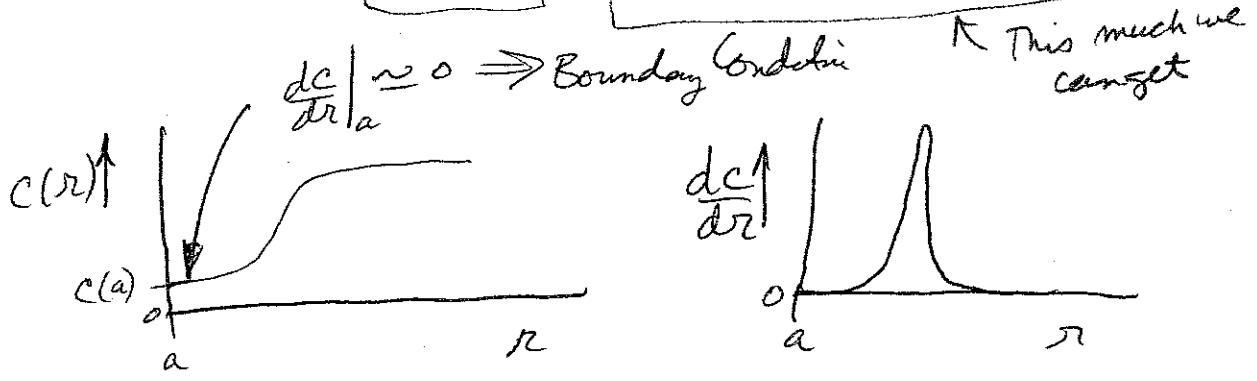 ↖ This much we
can get
dc/dr|a ≃ 0 ⇒ Boundary Condition
C(r)↑
C(a)
0
a
r
dc/dr↑
0
a
r